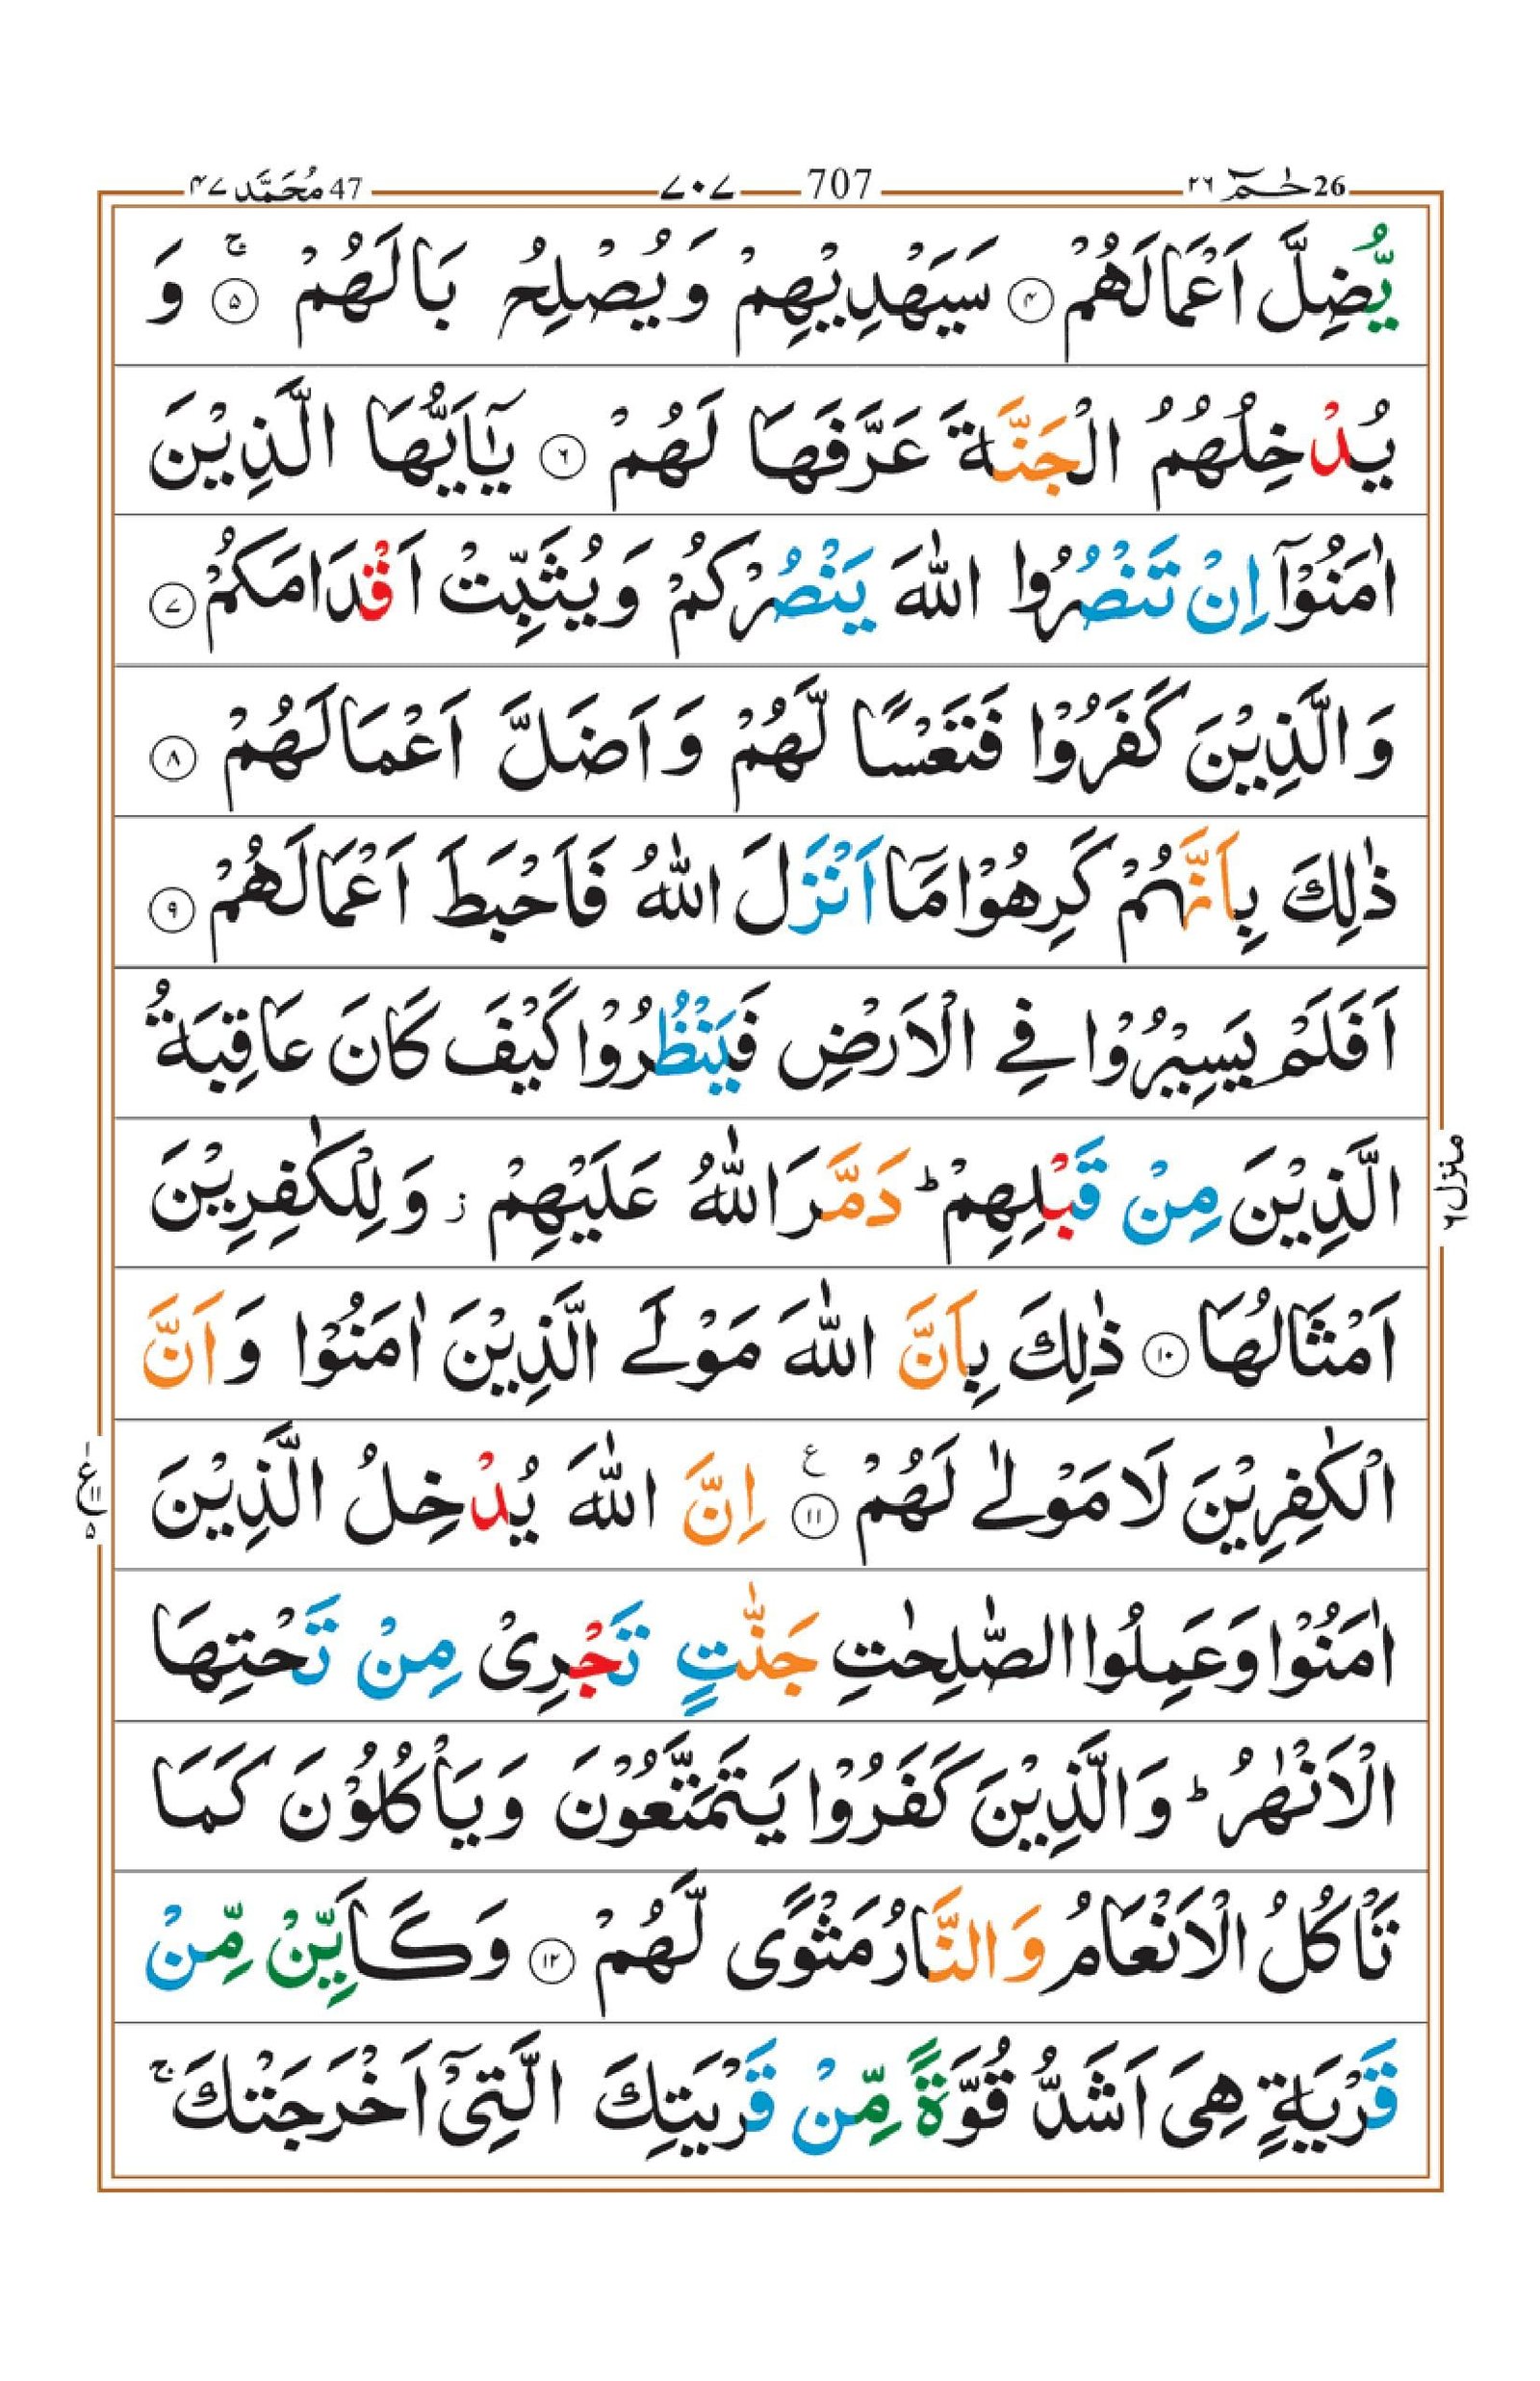 26 حٰمٓ ٢٦
707 ۷۰۷
47 مُحَمَّد ۴۷
يُّضِلَّ اَعْمَالَهُمْ ۴ سَيَهْدِيْهِمْ وَيُصْلِحُ بَالَهُمْ ۵ ۚ وَ
يُدْخِلُهُمُ الْجَنَّةَ عَرَّفَهَا لَهُمْ ۶ يٰٓاَيُّهَا الَّذِيْنَ
اٰمَنُوْٓا اِنْ تَنْصُرُوا اللّٰهَ يَنْصُرْكُمْ وَيُثَبِّتْ اَقْدَامَكُمْ ۷
وَالَّذِيْنَ كَفَرُوْا فَتَعْسًا لَّهُمْ وَاَضَلَّ اَعْمَالَهُمْ ۸
ذٰلِكَ بِاَنَّهُمْ كَرِهُوْا مَآ اَنْزَلَ اللّٰهُ فَاَحْبَطَ اَعْمَالَهُمْ ۹
اَفَلَمْ يَسِيْرُوْا فِي الْاَرْضِ فَيَنْظُرُوْا كَيْفَ كَانَ عَاقِبَةُ
الَّذِيْنَ مِنْ قَبْلِهِمْ ؕ دَمَّرَ اللّٰهُ عَلَيْهِمْ ز وَلِلْكٰفِرِيْنَ
اَمْثَالُهَا ۱۰ ذٰلِكَ بِاَنَّ اللّٰهَ مَوْلَى الَّذِيْنَ اٰمَنُوْا وَاَنَّ
الْكٰفِرِيْنَ لَا مَوْلٰى لَهُمْ ۱۱ ع اِنَّ اللّٰهَ يُدْخِلُ الَّذِيْنَ
اٰمَنُوْا وَعَمِلُوا الصّٰلِحٰتِ جَنّٰتٍ تَجْرِيْ مِنْ تَحْتِهَا
الْاَنْهٰرُ ؕ وَالَّذِيْنَ كَفَرُوْا يَتَمَتَّعُوْنَ وَيَاْكُلُوْنَ كَمَا
تَاْكُلُ الْاَنْعَامُ وَالنَّارُ مَثْوًى لَّهُمْ ۱۲ وَكَاَيِّنْ مِّنْ
قَرْيَةٍ هِيَ اَشَدُّ قُوَّةً مِّنْ قَرْيَتِكَ الَّتِيْٓ اَخْرَجَتْكَ ۚ
منزل ۶
۱ ع ۱۱ ۵